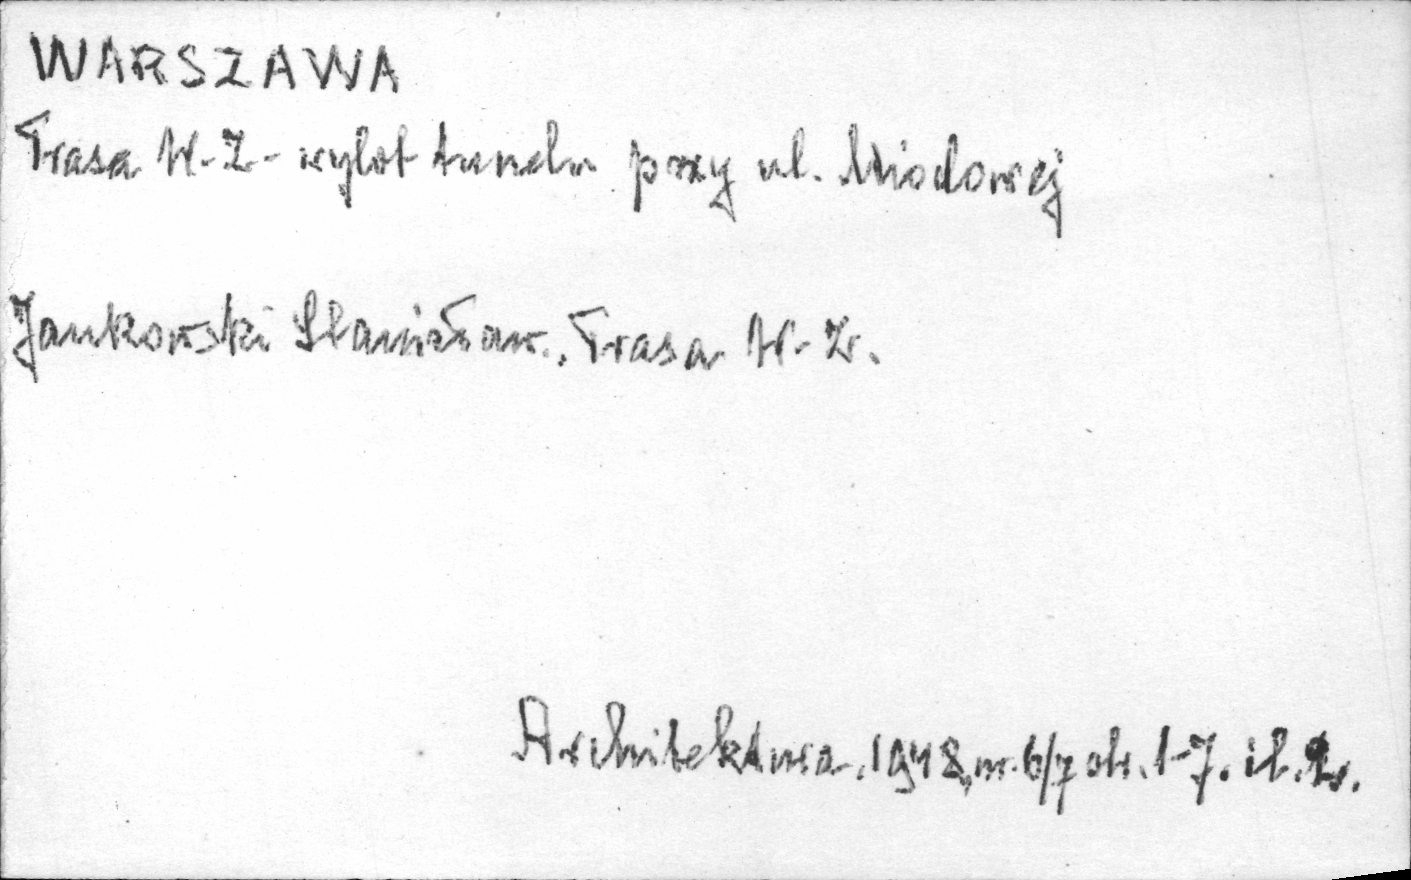 WARSZAWA
Trasa W-Z - wylot tunelu przy ul. Miodowej
Jankowski Stanisław., Trasa W-Z.
Architektura. 1948, nr. 6/7 str. 1-7. il.